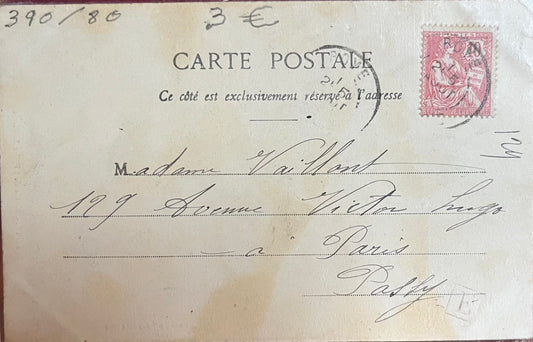 390/80 3 €
CARTE POSTALE
Ce côté est exclusivement réservé à l'adresse
10
Madame Vaillant
129 Avenue Victor Hugo
à Paris
Passy
E